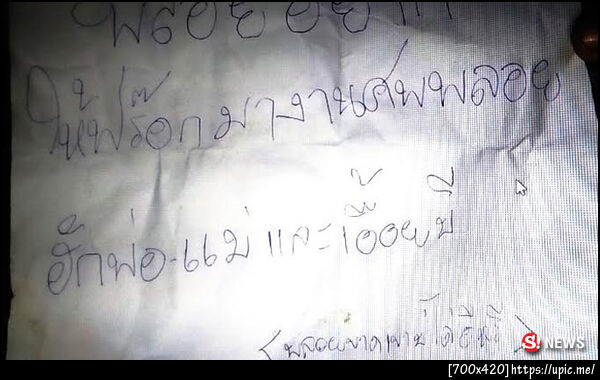 พลอยอยาก
ให้ฟร๊อกมางานศพพลอย
ฮักพ่อ-แม่ และเอื้อยบี
(พลอยขาดเขาบ่ได้อีหลี)
S! NEWS
[700x420]https://upic.me/